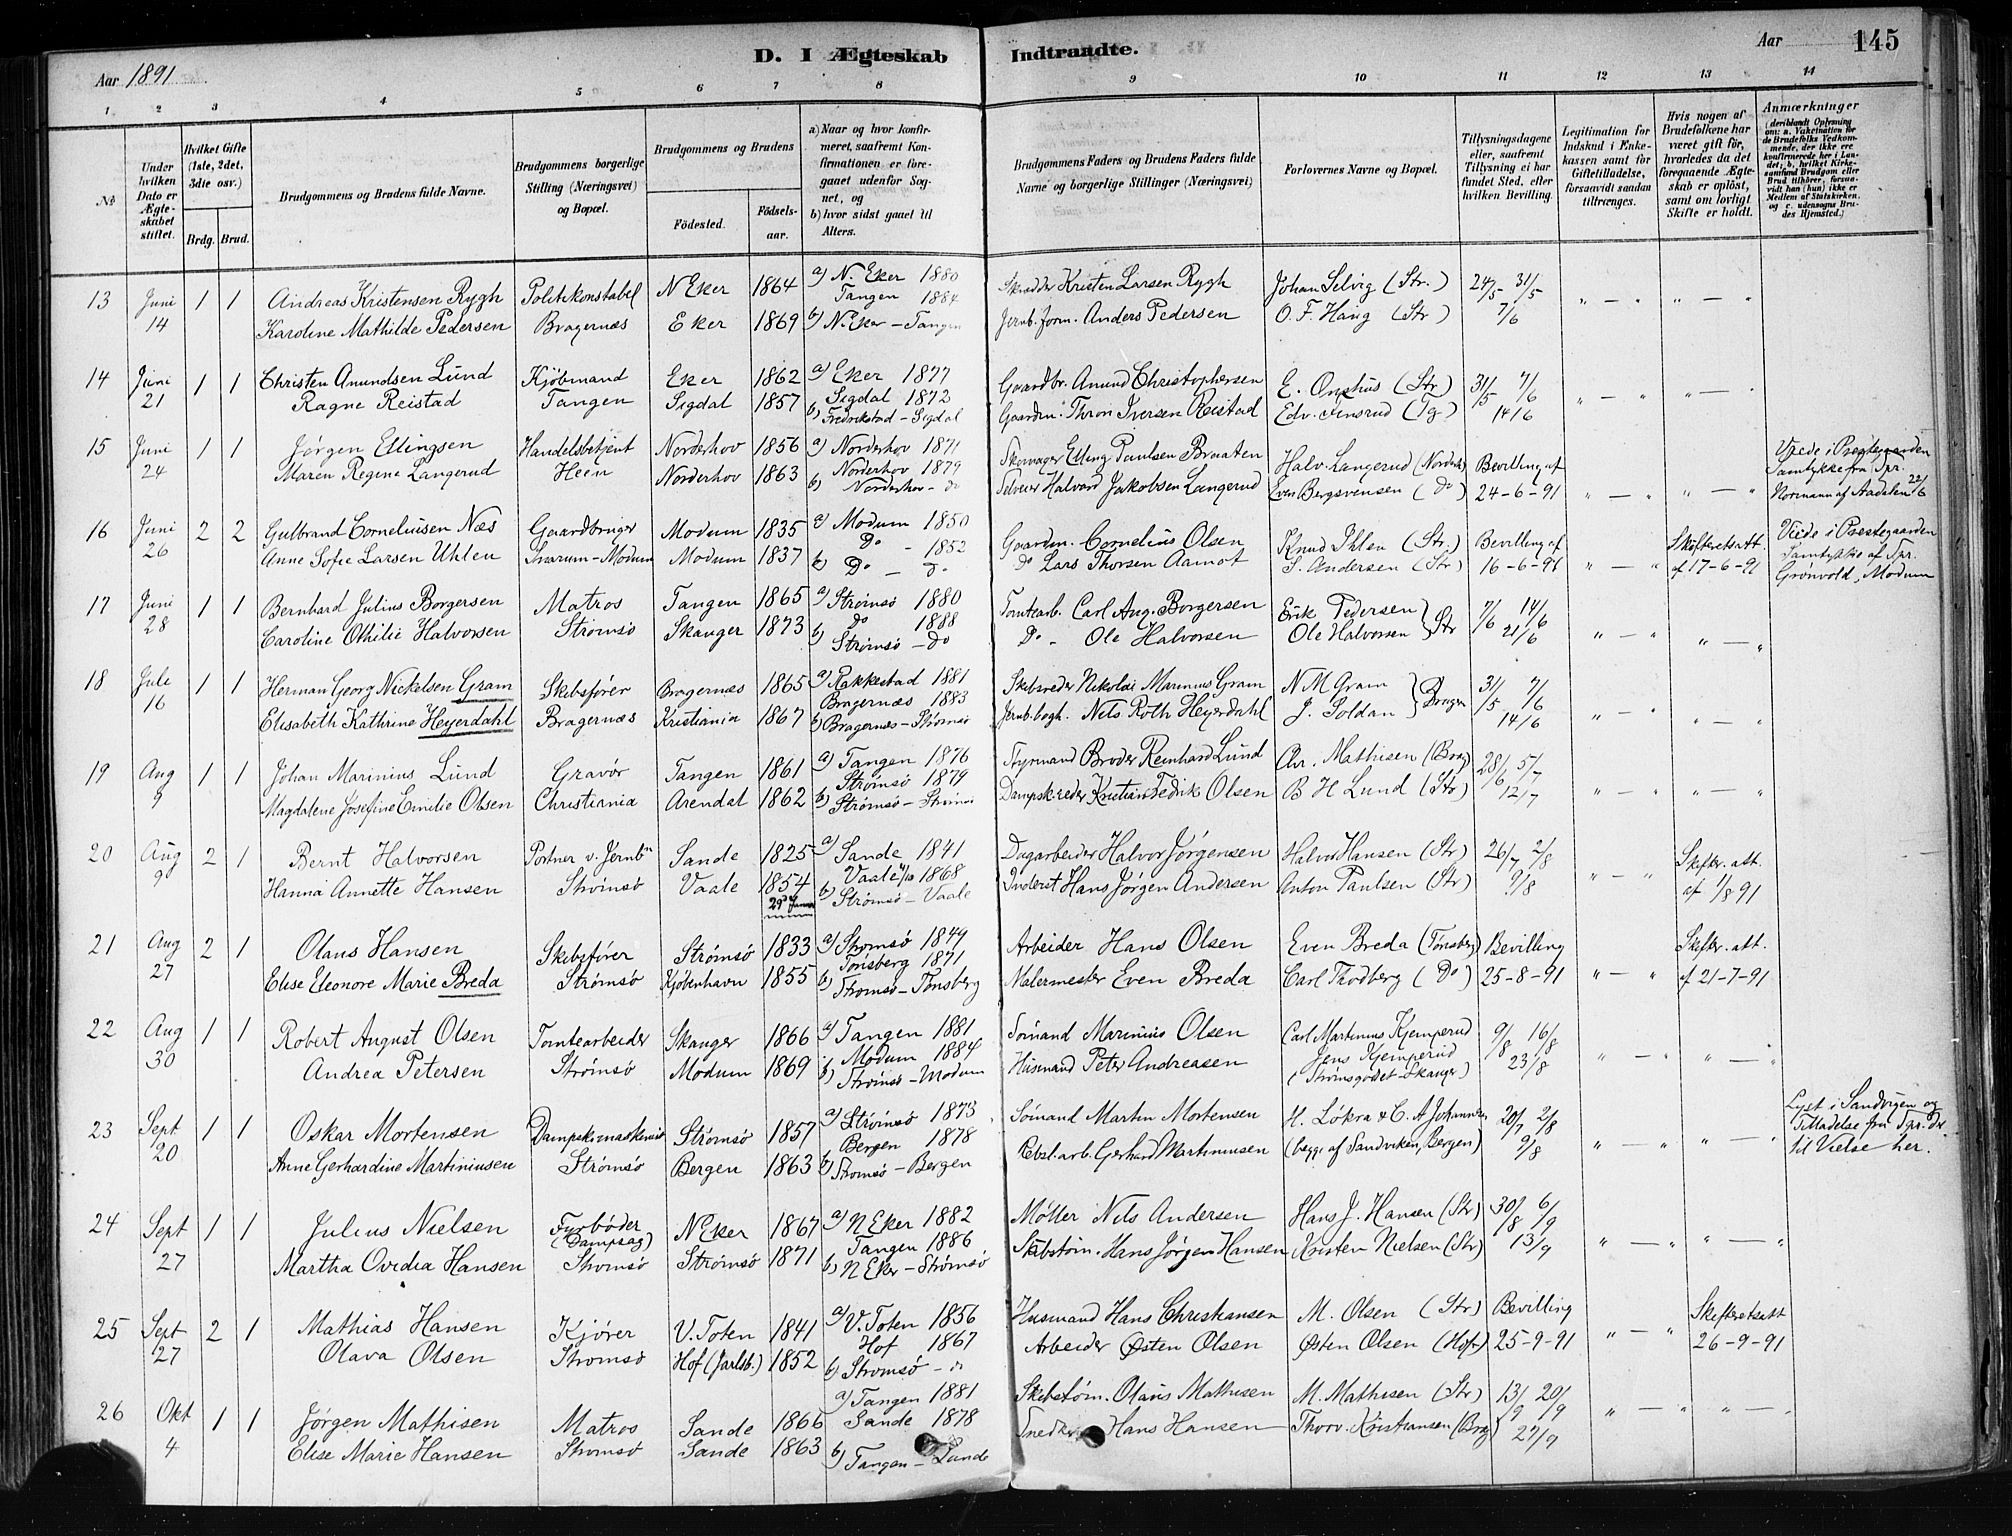 D. I Ægteskab Indtraadte.
Aar 1891
Aar 145
1 2 3 4 5 6 7 8 9 10 11 12 13 14
№
Under hvilken Dato er Ægteskabet stiftet.
Hvilket Gifte (1ste, 2det, 3die osv.)
Brdg. Brud.
Brudgommens og Brudens fulde Navne.
Brudgommens borgerlige Stilling (Næringsvei) og Bopæl.
Brudgommens og Brudens
Fødested. Fødselsaar.
a) Naar og hvor konfirmeret, saafremt Konfirmationen er foregaaet udenfor Sognet, og
b) hvor sidst gaaet til Alters.
Brudgommens Faders og Brudens Faders fulde Navne og borgerlige Stillinger (Næringsvei)
Forlovernes Navne og Bopæl.
Tillysningsdagene eller, saafremt Tillysning ei har fundet Sted, efter hvilken Bevilling.
Legitimation for Indskud i Enkekassen samt for Giftetilladelse, forsaavidt saadan tiltrænges.
Hvis nogen af Brudefolkene har været gift før, hvorledes da det foregaaende Ægteskab er opløst, samt om lovligt Skifte er holdt.
Anmærkninger (deriblandt Oplysning om: a. Vakcination for de Brudefolks Vedkommende, der ikke ere konfirmerede her i Landet; b. hvilket Kirkesamfund Brudgom eller Brud tilhører, forsaavidt han (hun) ikke er Medlem af Statskirken, og c. udensogns Brudes Hjemsted.)
13 Juni 1 1 Andreas Kristensen Rygh Politikonstabel N Eker 1864 a) N. Eker 1880 Skrædder Kristen Larsen Rygh Johan Selvig (Str.) 24/5 31/5 " — " " — "
Tangen 1884
14 Karoline Mathilde Pedersen Bragernæs Eker 1869 b) N. Eker – Tangen Jernb. form. Anders Pedersen O. F. Haug (Str) 7/6
14 Juni 1 1 Christen Amundsen Lund Kjøbmand Eker 1862 a) Eker 1877 Gaardbr. Amund Christophersen E. Onshus (Str) 31/5 7/6 " — " " — "
Sigdal 1872
21 Ragne Reistad Tangen Sigdal 1857 b) Fredrikstad – Sigdal Gaardm. Thron Iversen Reistad Edv. Jensrud (Tg) 14/6
15 Juni 1 1 Jørgen Ellingsen Handelsbetjent Norderhov 1856 a) Norderhov 1871 Skomager Elling Paulsen Braaten Halv. Langerud (Nordrh) Bevilling af Viede i Præstegaarden
Norderhov 1879 Samtykke fra Spr.
24 Maren Regine Langerud Heen Norderhov 1863 b) Norderhov – do Selveier Halvard Jakobsen Langerud Even Bergsvensen (Do) 24-6-91 " — " " — " Normann af Aadalen 22/6
16 Juni 2 2 Gulbrand Corneliusen Næs Gaardbruger Modum 1835 a) Modum 1850 Gaardm. Cornelius Olsen Knud Ihlen (Str.) Bevilling af Skifteretsatt. Viede i Præstegaarden
Do – 1852 Samtykke af Spr.
26 Anne Sofie Larsen Uhlen Snarum-Modum Modum 1837 b) Do – do Do Lars Thorsen Aamot S. Andersen (Str) 16-6-91 " — " af 17-6-91 Grønvold, Modum
17 Juni 1 1 Bernhard Julius Borgersen Matros Tangen 1865 a) Strømsø 1880 Tomtearb. Carl Aug. Borgersen Erik Pedersen } Str 7/6 14/6
Do 1888
28 Caroline Othilie Halvorsen Strømsø Skauger 1873 b) Strømsø – Do Do – Ole Halvorsen Ole Halvorsen 21/6 " — " " — "
18 Jule 1 1 Herman Georg Nickelsen Gram Skibsfører Bragernæs 1865 a) Rakkestad 1881 Skibsreder Nikolai Marinus Gram N M Gram } Bragen 31/5 7/6
Bragernæs 1883
16 Elisabeth Kathrine Heyerdahl Bragernæs Kristiania 1867 b) Bragernæs – Strømsø Jernb. bogh. Nels Roth Heyerdahl J. Soldan 14/6 " — " " — "
19 Aug 1 1 Johan Marinius Lund Gravør Tangen 1861 a) Tangen 1876 Styrmand Broder Reinhard Lund Chr. Mathisen (Brag) 28/6 5/7
Strømsø 1879
9 Magdalene Josefine Emilie Olsen Christiania Arendal 1862 b) Strømsø – Strømsø Dampsk.reder Kristian Fedrik Olsen B H Lund (Str) 12/7 " — " " — "
20 Aug 2 1 Bernt Halvorsen Portner v. Jernbn Sande 1825 a) Sande 1841 Dagarbeider Halvor Jørgensen Halvor Hansen (Str) 26/7 2/8 Skifter. att.
Vaale 1868
9 Hanna Annette Hansen Strømsø Vaale 1854 b) Strømsø – Vaale Inderst Hans Jørgen Andersen Anton Paulsen (Str) 9/8 " — " af 1/8 91
21 Aug 2 1 Olaus Hansen Skibsfører Strømsø 1833 a) Strømsø 1849 Arbeider Hans Olsen Even Breda (Tønsberg) Bevilling Skifter. att.
Tønsberg 1871
27 Elise Eleonore Marie Breda Strømsø Kjøbenhavn 1855 b) Strømsø – Tønsberg Malermester Even Breda Carl Thodberg (Do) 25-8-91 " — " af 21-7-91
22 Aug 1 1 Robert August Olsen Tomtearbeider Skauger 1866 a) Tangen 1881 Sømand Marinius Olsen Carl Martinus Kjemperud 9/8 16/8
Modum 1884 Jens Kjemperud
30 Andrea Petersen Strømsø Modum 1869 b) Strømsø – Modum Husmand Peter Andreasen (Strømsgodset – Skauger) 23/8 " — " " — "
23 Sept 1 1 Oskar Mortensen Dampskibsmaskinist Strømsø 1857 a) Strømsø 1873 Sømand Martin Mortensen H. Løkra & C. A. Johannesen 20/7 2/8 Lyst i Sandvigen og
Bergen 1878 Tilladelse fra Spr. Dr.
20 Anne Gerhardine Martiniusen Strømsø Bergen 1863 b) Strømsø – Bergen Rebsl.arb. Gerhard Martiniusen (begge af Sandviken, Bergen) 9/8 " — " " — " til Vielse her.
24 Sept 1 1 Julius Nielsen Fyrbøder (Dampsag) N. Eker 1867 a) N Eker 1882 Møller Nils Andersen Hans J. Hansen (Str) 30/8 6/9
Tangen 1886
27 Martha Ovidia Hansen Strømsø Strømsø 1871 b) N Eker – Strømsø Skibstøm. Hans Jørgen Hansen Kristen Nielsen (Str) 13/9 " — " " — "
25 Sept 2 1 Mathias Hansen Kjører V. Toten 1841 a) V. Toten 1856 Husmand Hans Christiansen M. Olsen (Str) Bevilling Skifteretsatt
Hof 1867
27 Olava Olsen Strømsø Hof (Jarlsb.) 1852 b) Strømsø – do Arbeider Østen Olsen Østen Olsen (Hof) 25-9-91 " — " 26-9-91
26 Okt 1 1 Jørgen Mathisen Matros Sande 1866 a) Tangen 1881 Skibstøm. Olaus Mathisen M. Mathisen (Str) 13/9 20/9 " — " " — "
Sande 1878
4 Elise Marie Hansen Strømsø Sande 1863 b) Tangen – Sande Snedker Hans Hansen Thorv. Kristiansen (Brag) 27/9